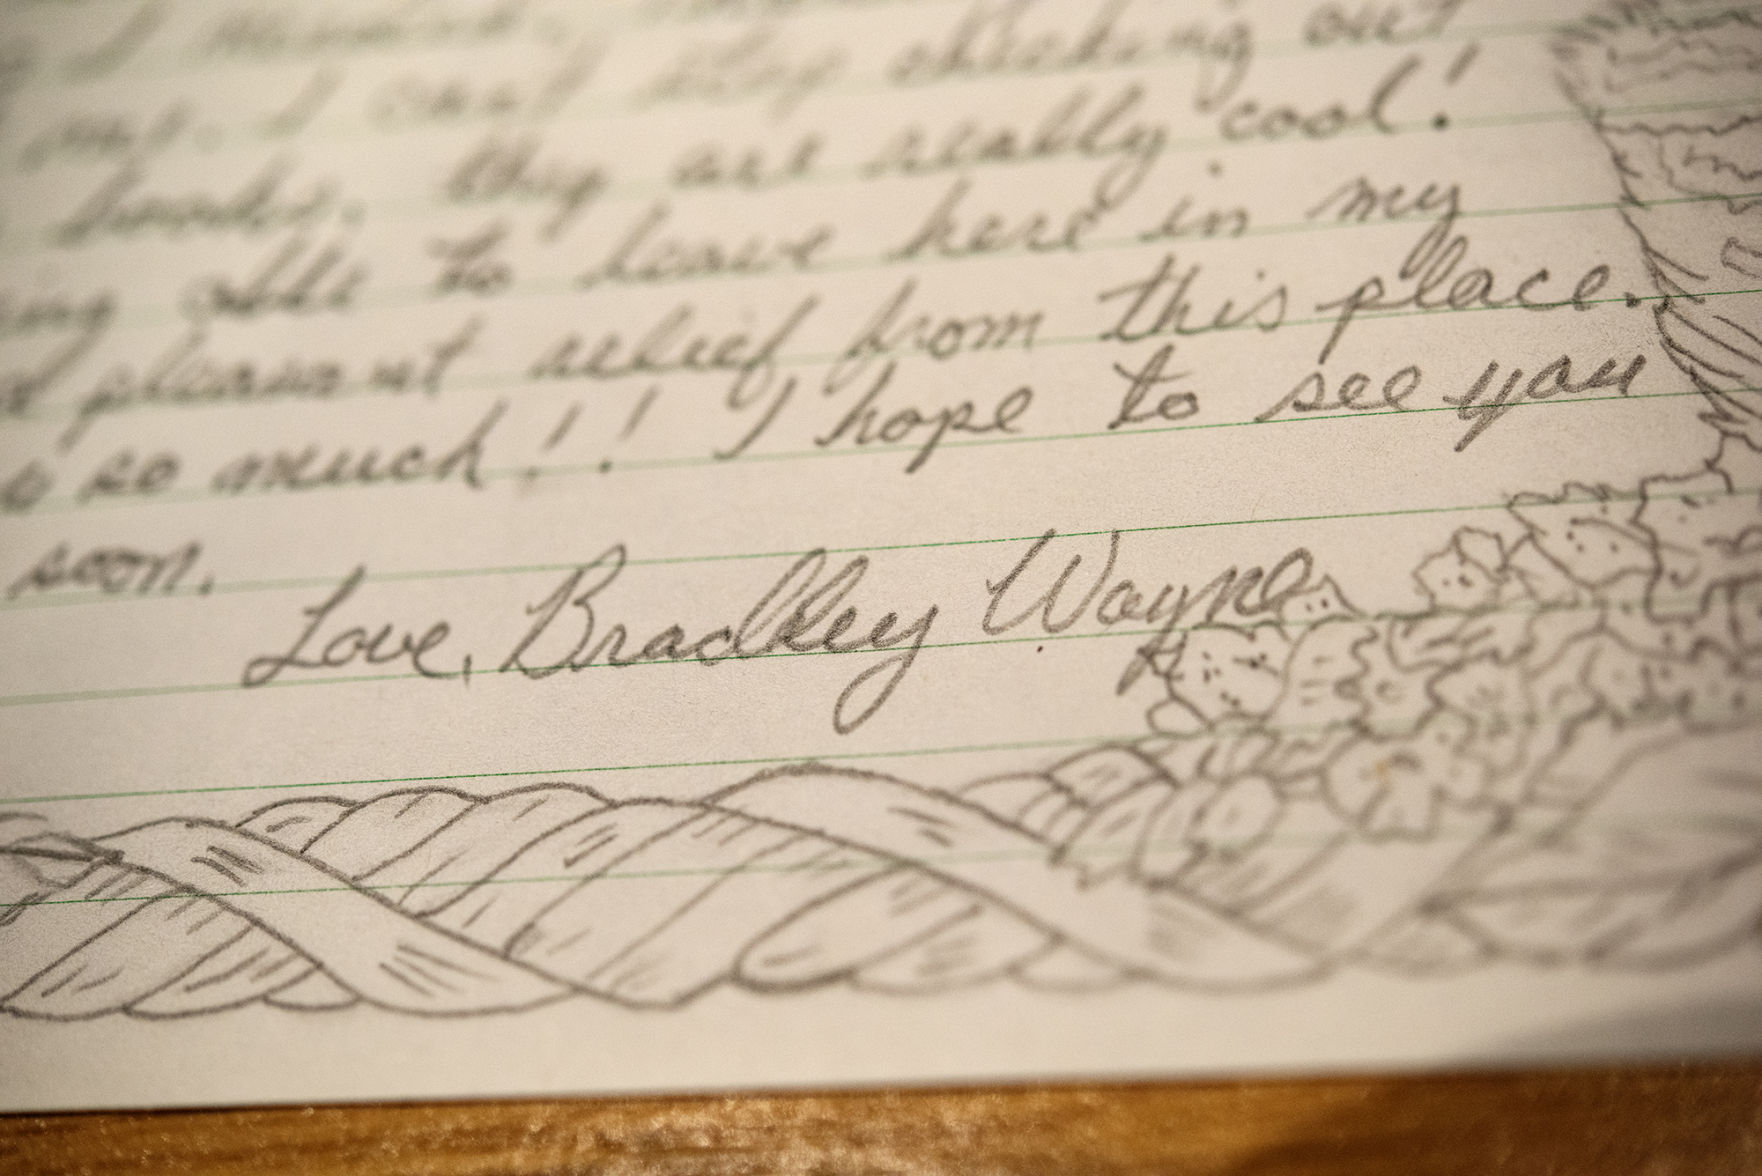 I
out. I can't stop checking out
books, they are really cool!
able to leave here in my
pleasant relief from this place.
so much!! I hope to see you
soon.
Love, Bradley Wayne